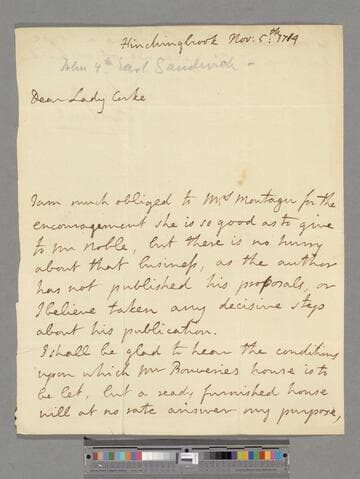 Hinchingbrook Nov: 5.th 1789
John 4th Earl Sandwich -
Dear Lady Corke
I am much obliged to Mrs Montagu for the
encouragement she is so good as to give
to Mr Noble, but there is no hurry
about that business, as the author
has not published his proposals, or
I believe taken any decisive steps
about his publication.
I shall be glad to hear the conditions
upon which Mr Bouveries house is to
be let, but a ready furnished house
will at no rate answer my purpose,